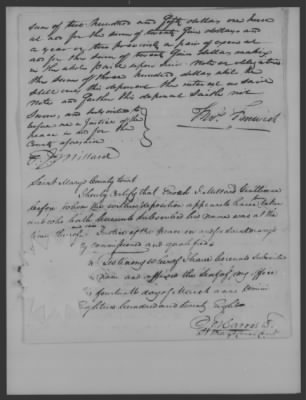 sum of two hundred and fifty dollars one horse
at and for the sum of twenty five dollars and
a year or two previously a pair of oxen at
and for the sum of twenty five dollars making
in the all
the sum of three hundred dollars shall the
this deponent the enters as on said
note and further this deponent saith not
Sworn and subscribed to
before me a Justice of the
peace in and for the
County aforesaid
Thos. Fenwick
E. J. Millard
Saint Mary's County Court
I hereby certify that Enoch J. Millard Gentleman
before whom the within deposition appears to have been taken
and who hath hereunto subscribed his name was at the
time thereof and still is a Justice of the Peace in and for said County
commissioned and qualified
In testimony whereof I have hereunto subscribed
my name and affixed the seal of my office
this fourteenth day of March anno Domini
Eighteen hundred and twenty Eight
Harris